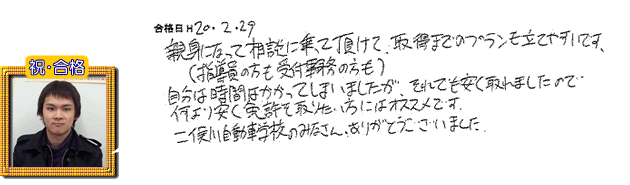 合格日 H20.2.29
親身になって相談に乗って頂けて、取得までのプランも立てやすいです。
(指導員の方も受付事務の方も)
自分は時間はかかってしまいましたが、それでも安く取れましたので
何より安く免許を取りたい方にはオススメです。
二俣川自動車学校のみなさん、ありがとうございました。
祝・合格